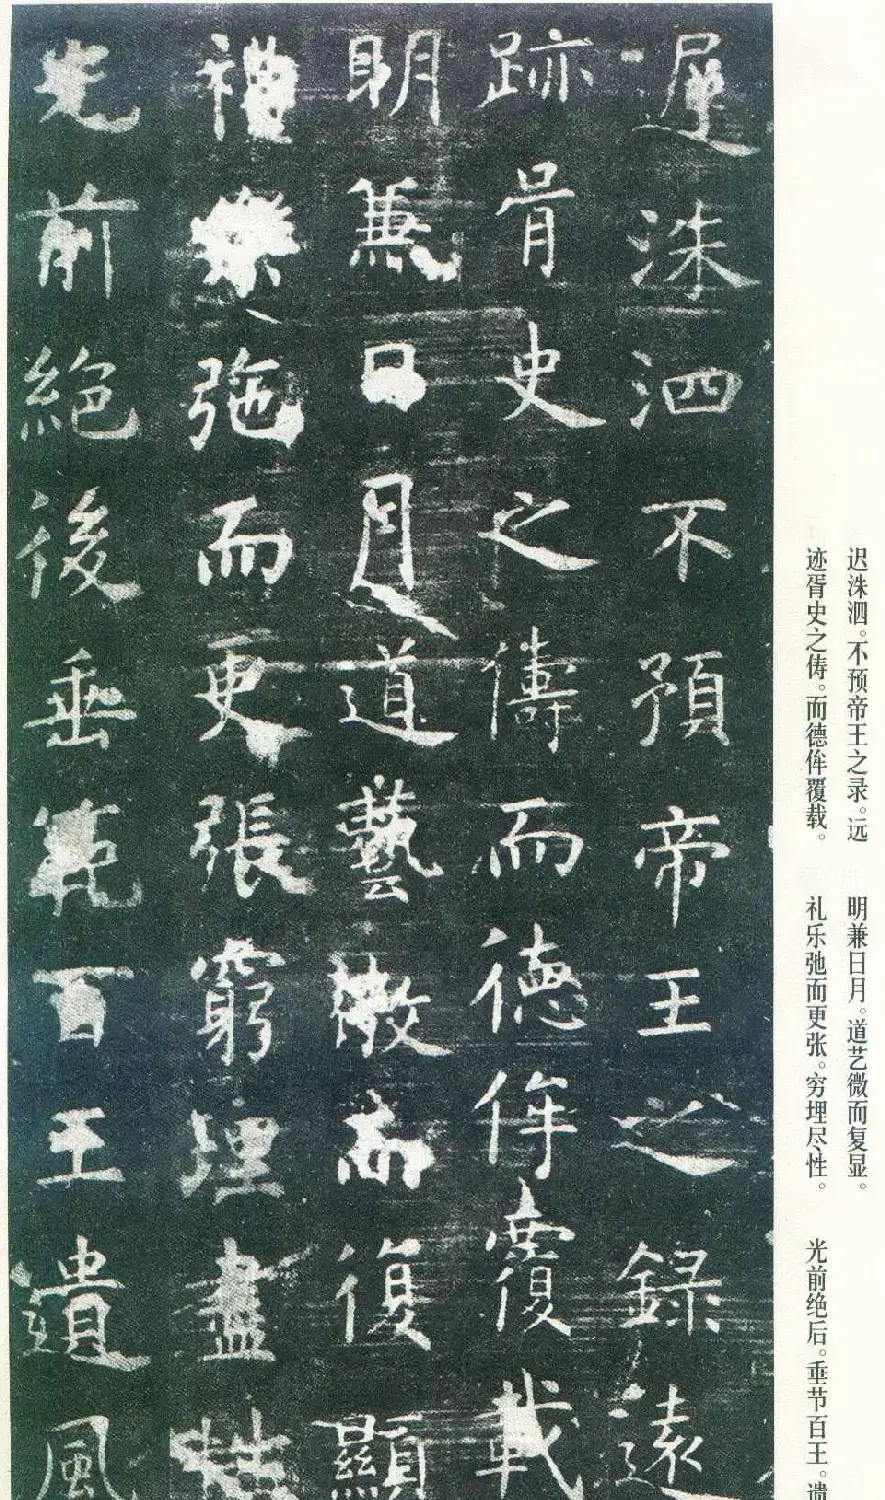 遲洙泗不預帝王之錄遠
跡胥史之儔而德侔覆載
明兼日月道藝微而復顯
禮樂弛而更張窮理盡性
光前絕後垂範百王遺風
迟洙泗。不预帝王之录。远
迹胥史之俦。而德侔覆载。
明兼日月。道艺微而复显。
礼乐弛而更张。穷埋尽性。
光前绝后。垂节百王。遗